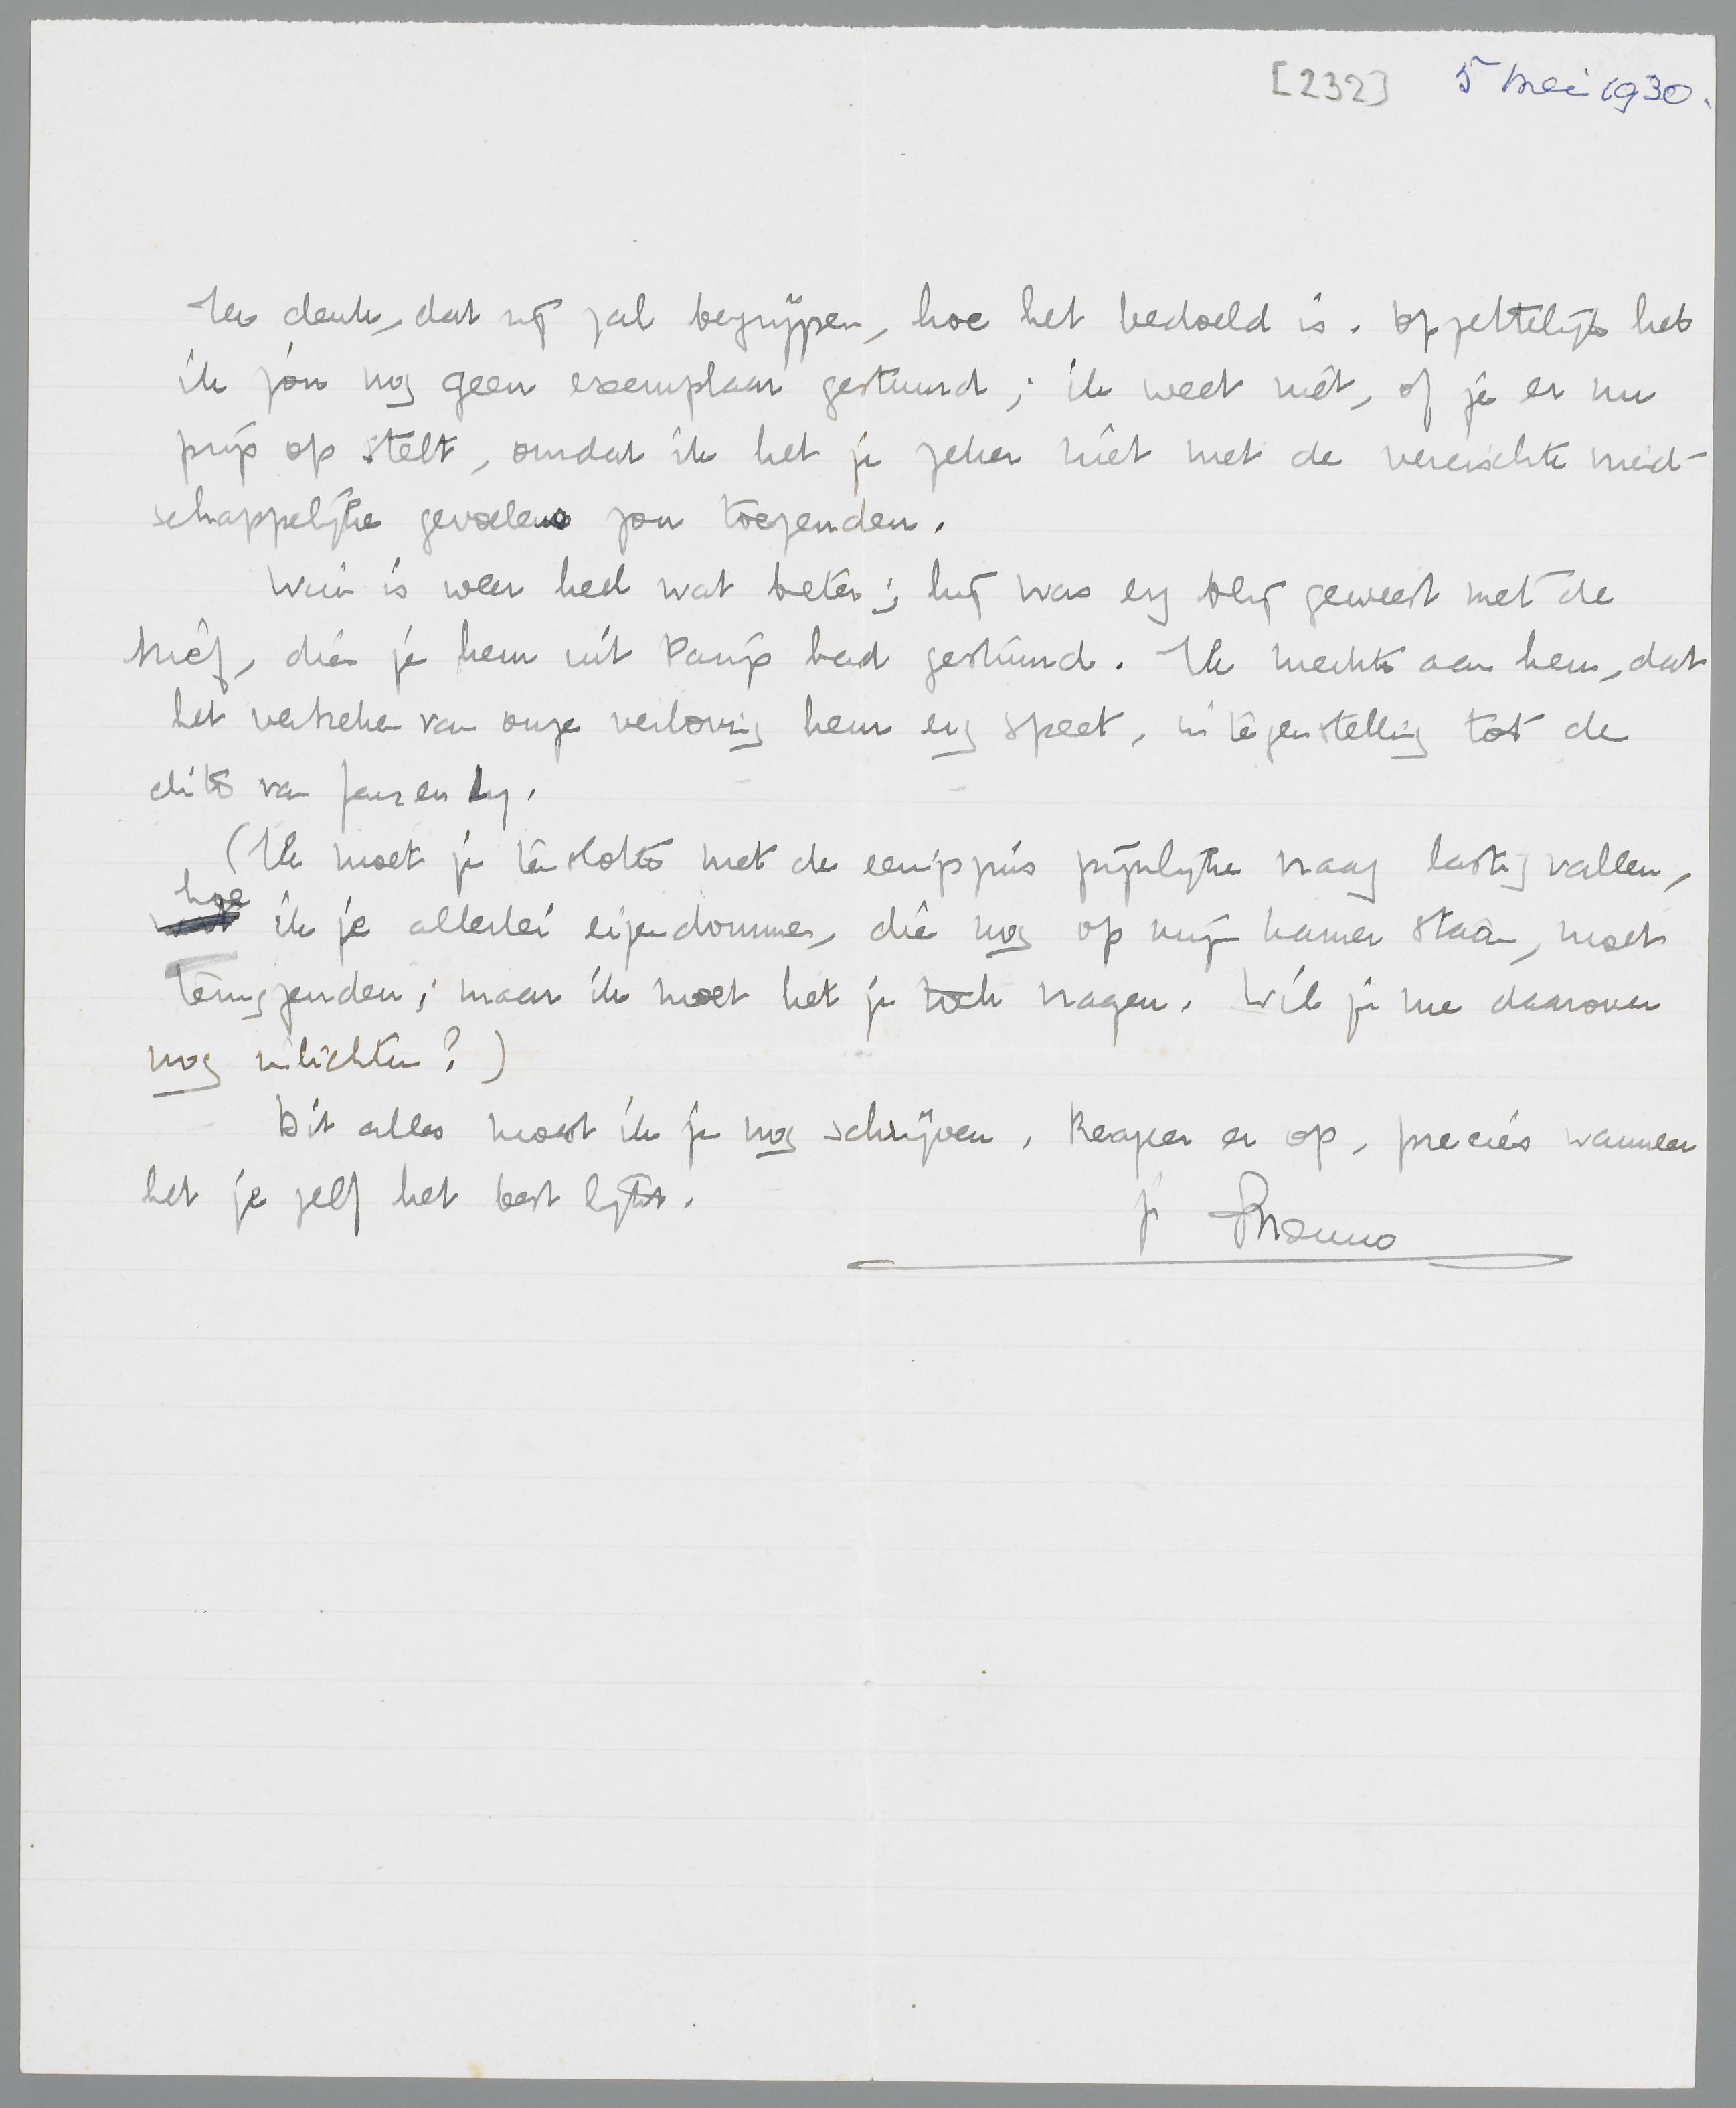 [232] 5 Mei 1930.
Ik denk, dat zij zal begrijpen, hoe het bedoeld is. Opzettelijk heb
ik jóu nog geen exemplaar gestuurd; ik weet niet, of je er nu
prijs op stelt, omdat ik het je zeker niet met de vereischte vriend-
schappelijke gevoelens zou toezenden.
Wim is weer heel wat beter; hij was erg blij geweest met de
brief, die je hem uit Parijs had gestuurd. Ik merkte aan hem, dat
het verbreken van onze verloving hem erg speet, in tegenstelling tot de
dito van
(Ik moet je tenslotte met de eenigszins pijnlijke vraag lastig vallen,
hoe ik je allerlei eigendommen, die nog op mijn kamer staan, moet
terugzenden; maar ik moet het je toch vragen. Wil je me daarover
nog inlichten?)
Dit alles moest ik je nog schrijven. Reageer er op, precies wanneer
het je zelf het best lijkt.
je Menno